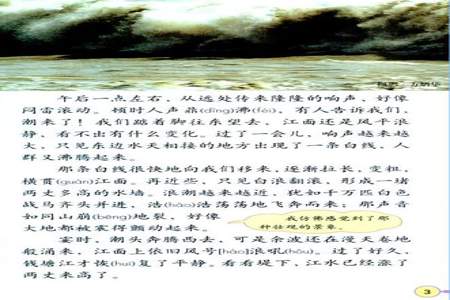 午后一点左右，从远处传来隆隆的响声，好像
闷雷滚动。顿时人声鼎(dǐng)沸(fèi)，有人告诉我们，
潮来了！我们踮着脚往东望去，江面还是风平浪
静，看不出有什么变化。过了一会儿，响声越来越
大，只见东边水天相接的地方出现了一条白线，人
群又沸腾起来。
那条白线很快地向我们移来，逐渐拉长，变粗，
横贯(guàn)江面。再近些，只见白浪翻滚，形成一堵
两丈多高的水墙。浪潮越来越近，犹如千万匹白色
战马齐头并进，浩(hào)浩荡荡地飞奔而来；那声音
如同山崩(bēng)地裂，好像
大地都被震得颤动起来。
我仿佛感觉到了那
种壮观的景象。
霎时，潮头奔腾西去，可是余波还在漫天卷地
般涌来，江面上依旧风号(háo)浪吼(hǒu)。过了好久，
钱塘江才恢(huī)复了平静。看看堤下，江水已经涨了
两丈来高了。
3